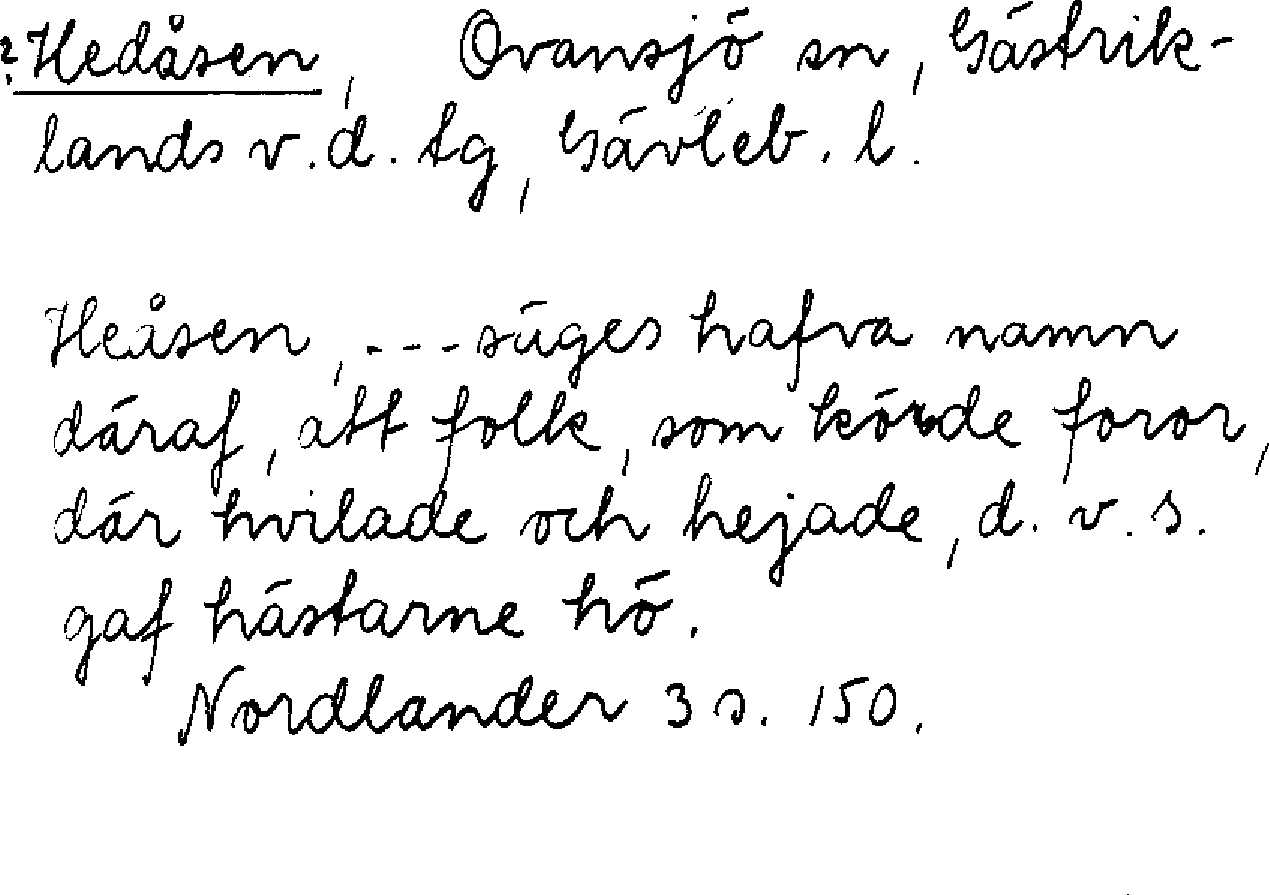 ?Hedåsen, Ovansjö sn, Gästrik-
lands v.d. tg, Gävleb. l.
Heåsen, --- säges hafva namn
däraf, att folk, som körde foror,
där hvilade och hejade, d. v. s.
gaf hästarne hö.
Nordlander 3 s. 150.